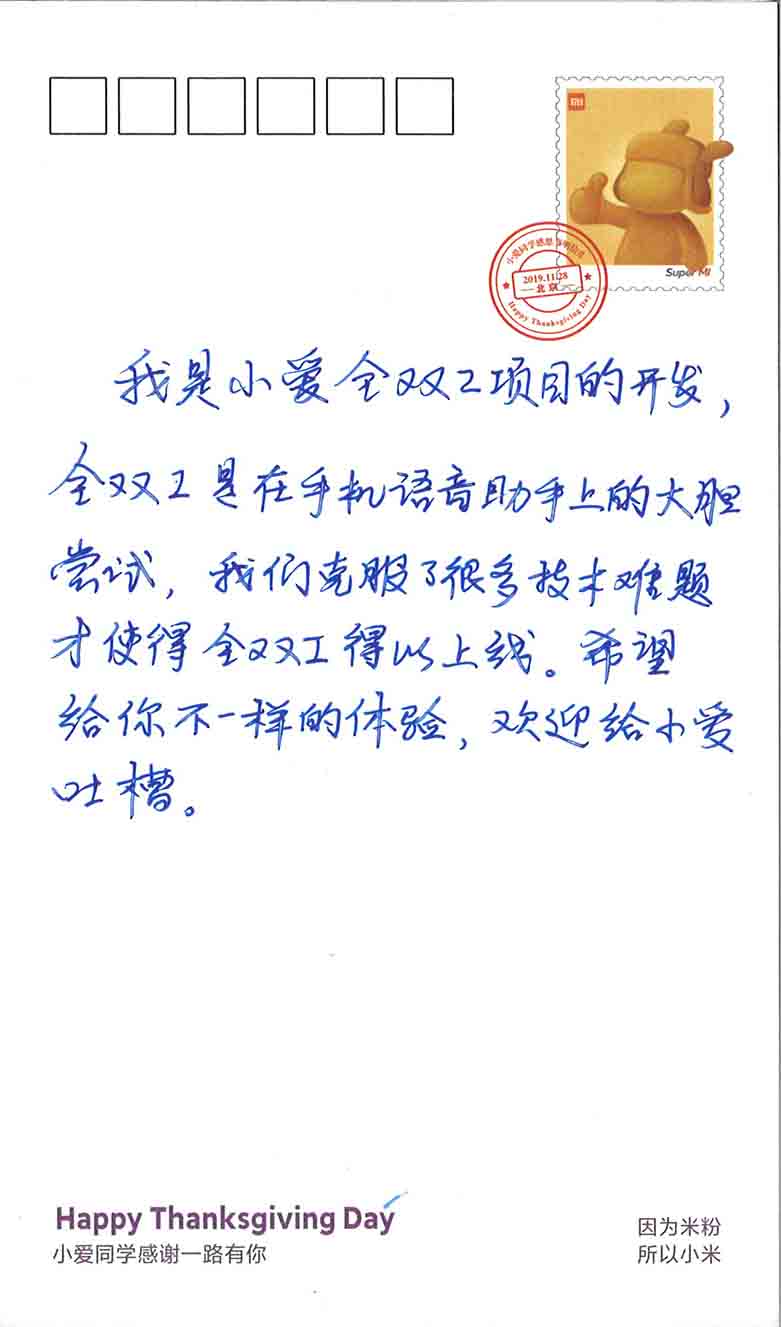 MI
Super MI
2019.11.28
北京
Happy Thanksgiving Day
我是小爱全双工项目的开发，
全双工是在手机语音助手上的大胆
尝试，我们克服了很多技术难题
才使得全双工得以上线。希望
给你不一样的体验，欢迎给小爱
吐槽。
Happy Thanksgiving Day
小爱同学感谢一路有你
因为米粉
所以小米